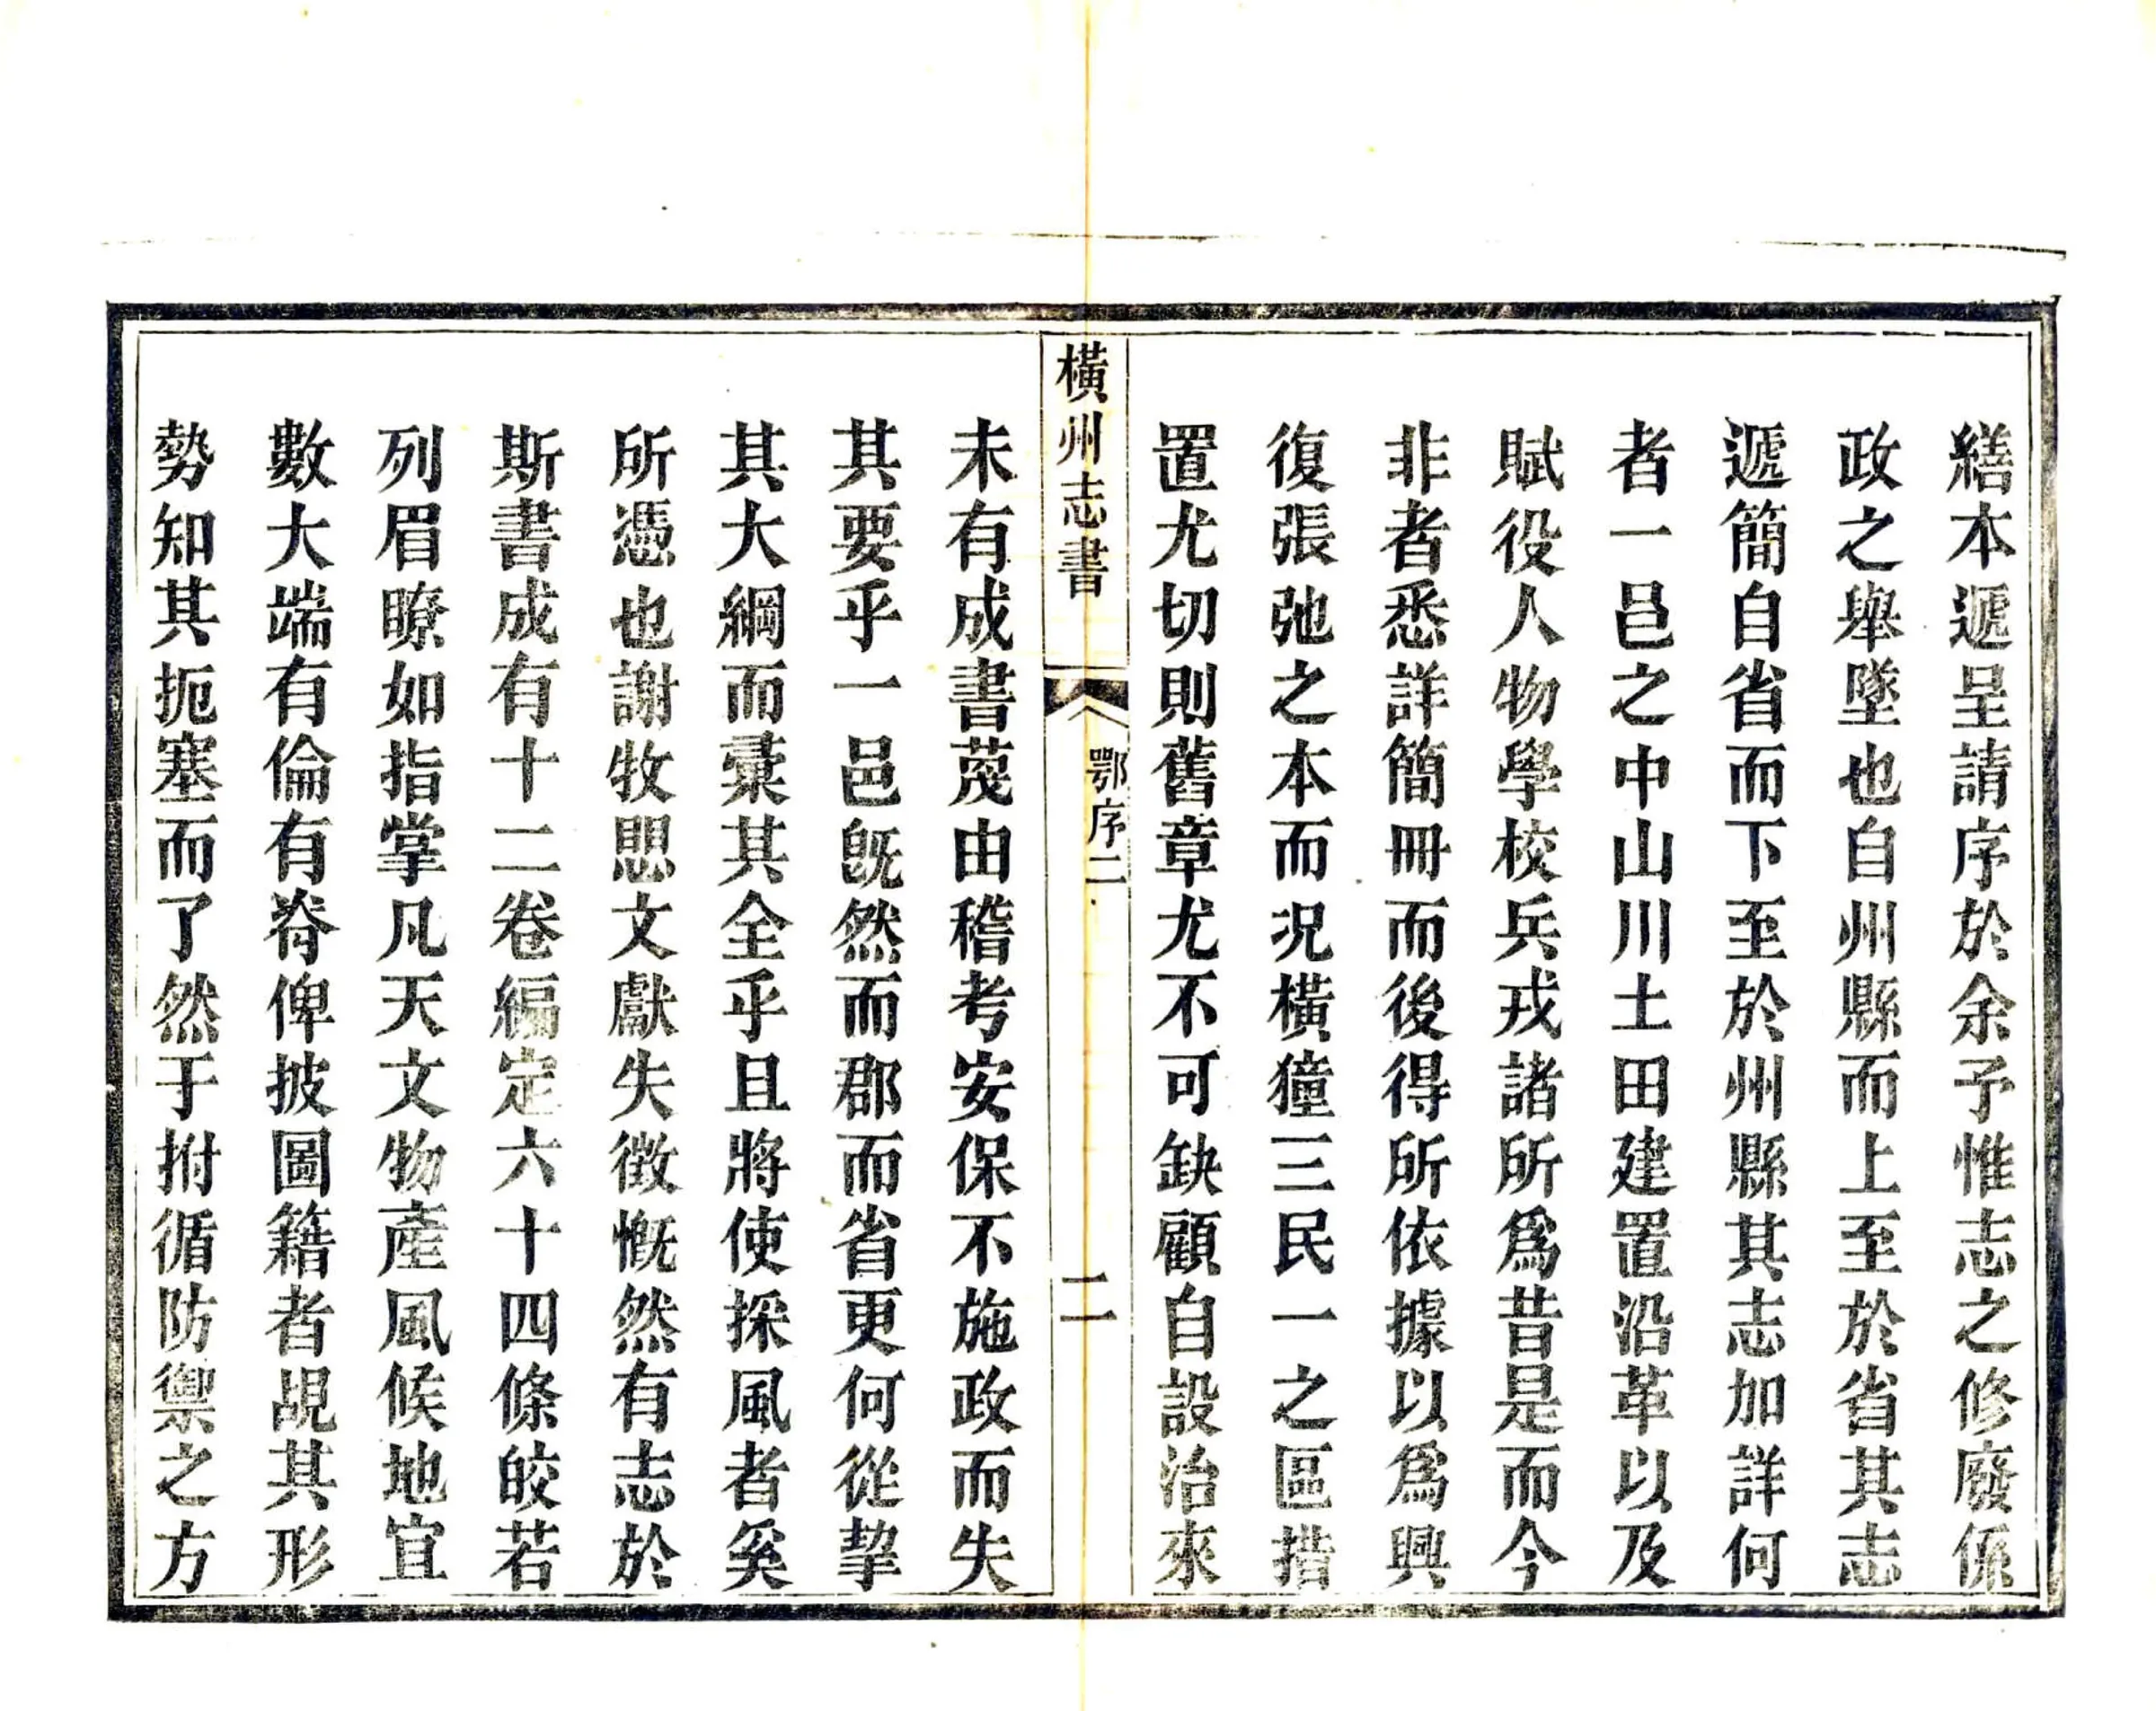 繕本遞呈請序於余予惟志之修廢係
政之舉墜也自州縣而上至於省其志
遞簡自省而下至於州縣其志加詳何
者一邑之中山川土田建置沿革以及
賦役人物學校兵戎諸所爲昔是而今
非者悉詳簡冊而後得所依據以爲興
復張弛之本而況橫獞三民一之區措
置尤切則舊章尤不可缺顧自設治來
橫州志書
鄂序二
二
未有成書蔑由稽考安保不施政而失
其要乎一邑旣然而郡而省更何從挈
其大綱而彙其全乎且將使採風者奚
所憑也謝牧愳文獻失徵慨然有志於
斯書成有十二卷編定六十四條皎若
列眉瞭如指掌凡天文物產風候地宜
數大端有倫有脊俾披圖籍者覘其形
勢知其扼塞而了然于拊循防禦之方